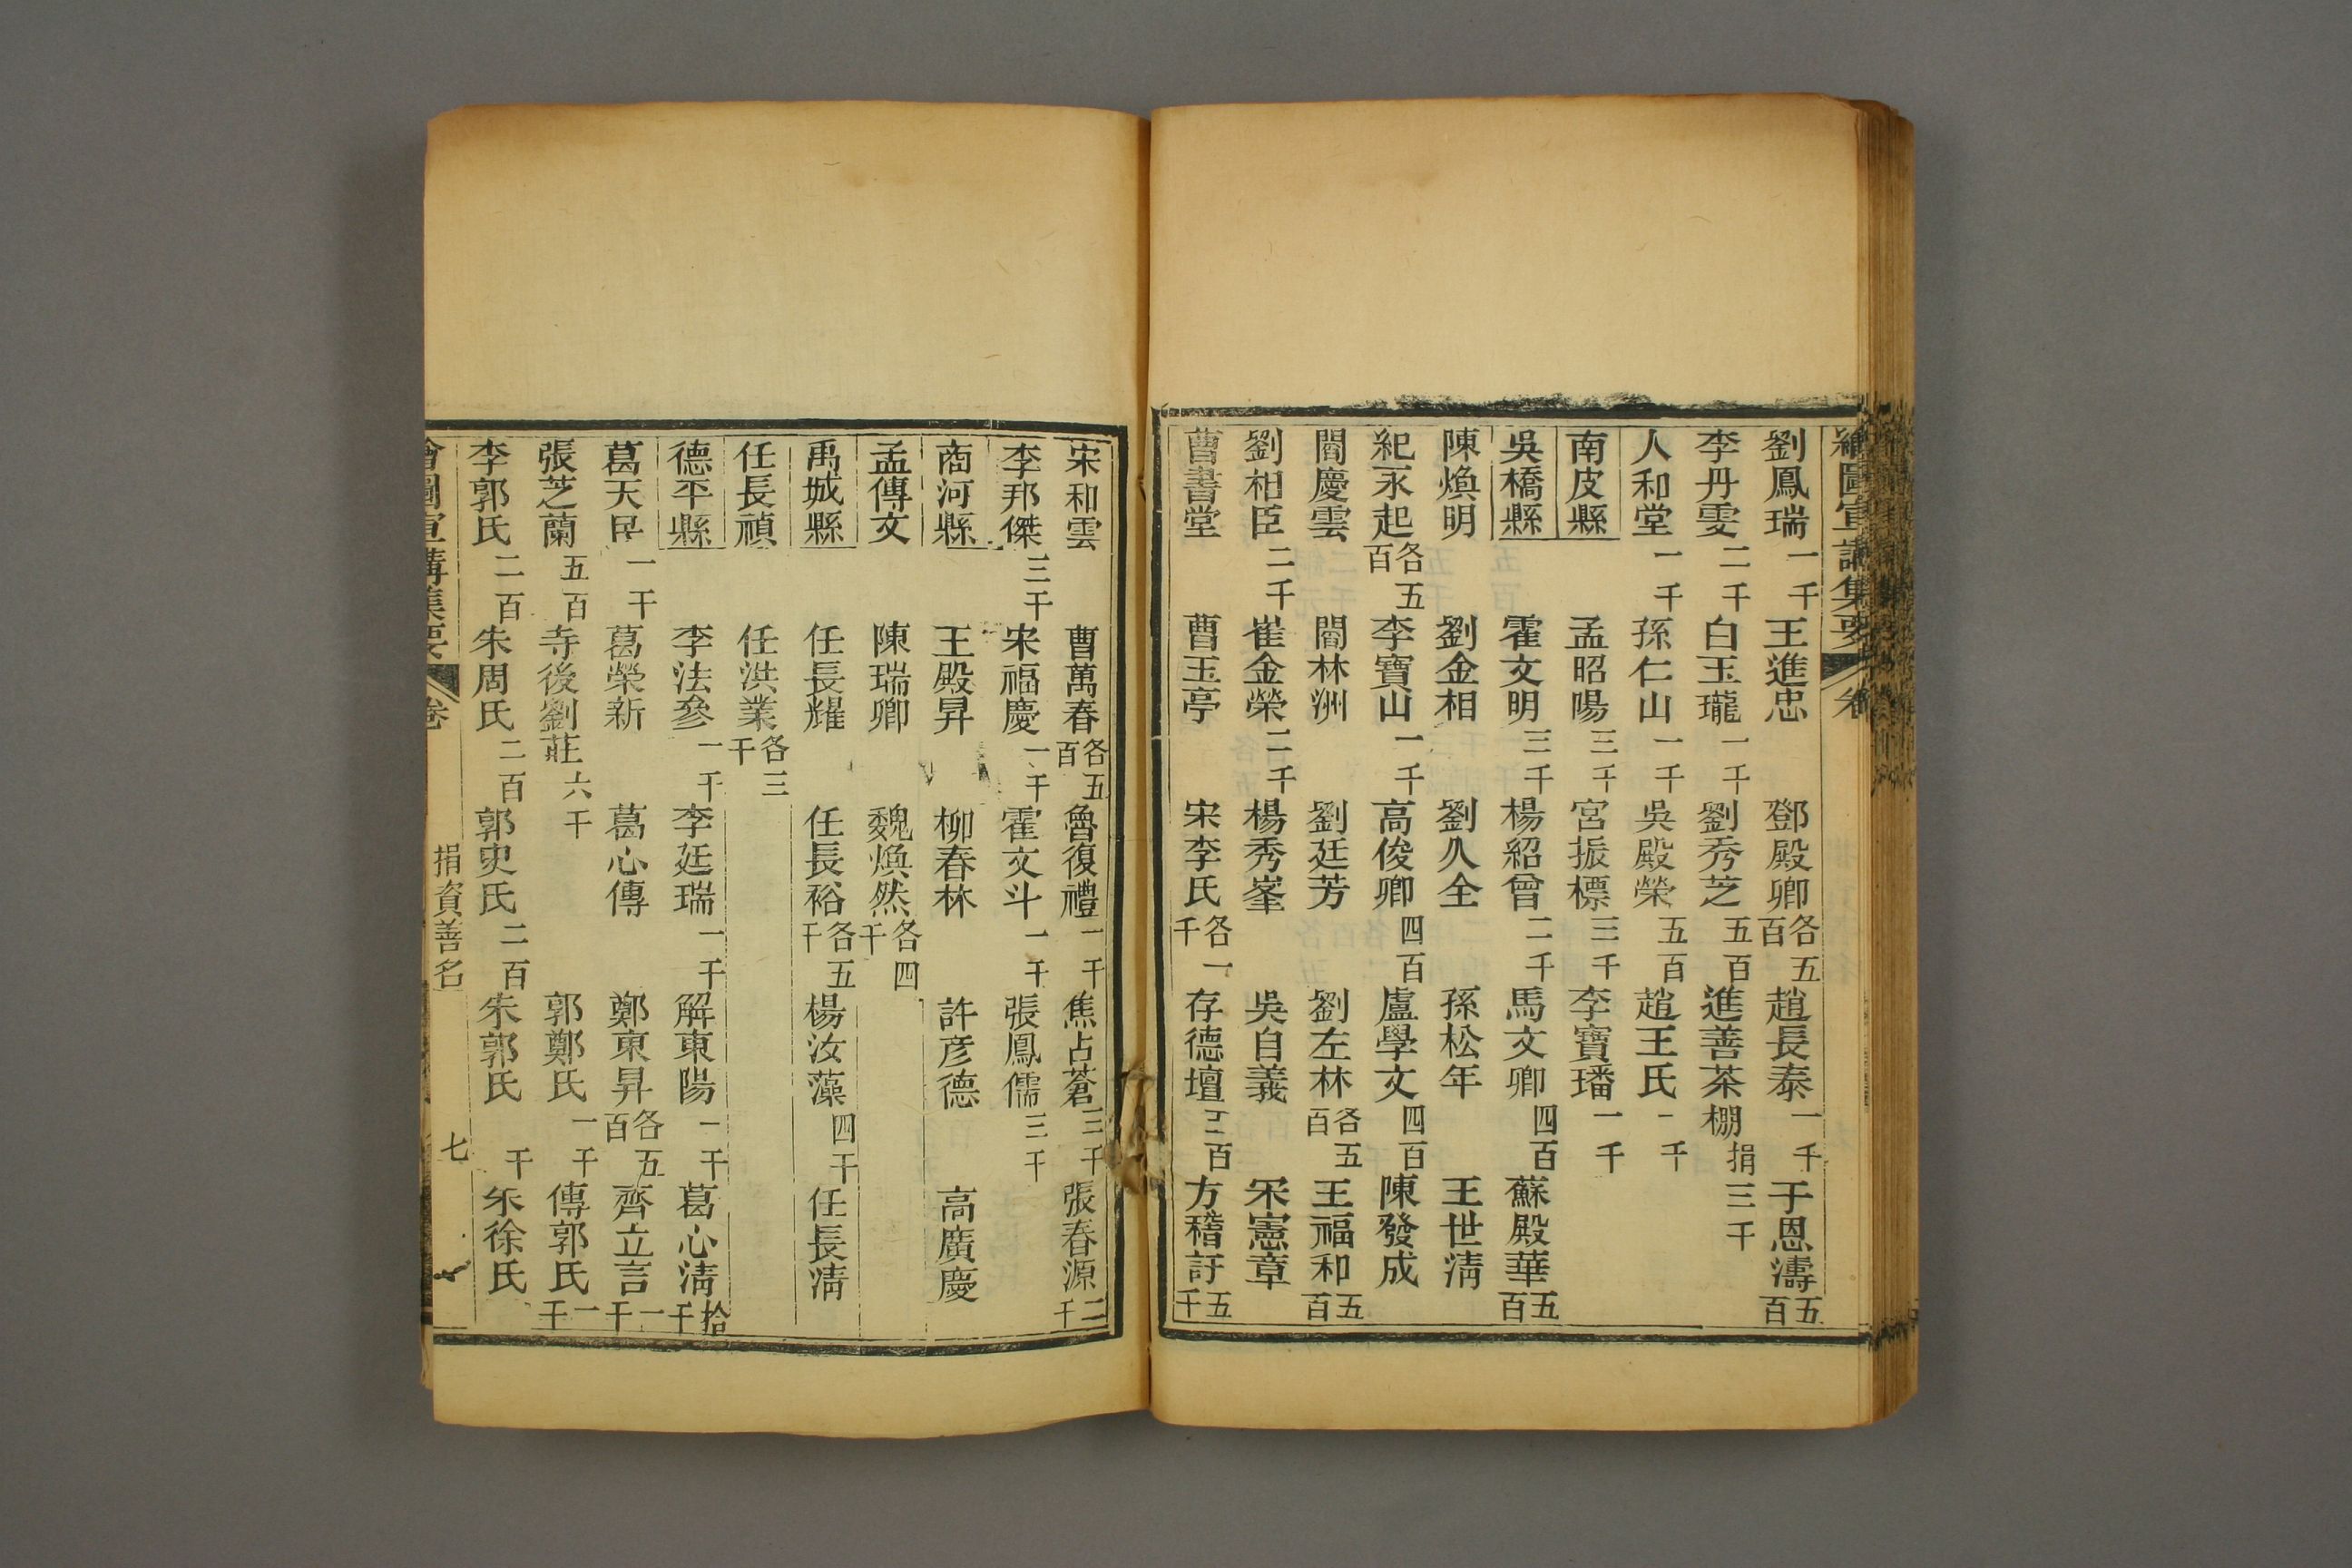 繪圖宣講集要 卷
劉鳳瑞 一千 王進忠 鄧殿卿 各五百 趙長泰 一千 于恩濤 五百
李丹雯 二千 白玉瓏 一千 劉秀芝 五百 進善茶棚 捐三千
人和堂 一千 孫仁山 一千 吳殿榮 五百 趙王氏 一千
南皮縣 孟昭陽 三千 宮振標 三千 李寶璠 一千
吳橋縣 霍文明 三千 楊紹曾 二千 馬文卿 四百 蘇殿華 五百
陳煥明 劉金相 劉久全 孫松年 王世清
紀永起 各五百 李寶山 一千 高俊卿 四百 盧學文 四百 陳發成
閻慶雲 閻林洲 劉廷芳 劉左林 各五百 王福和 五百
劉相臣 二千 崔金榮 二千 楊秀峯 吳自義 宋憲章
曹書堂 曹玉亭 宋李氏 各一千 存德壇 三百 方稽訏 五千
宋和雲 曹萬春 各五百 魯復禮 一千 焦占蒼 三千 張春源 二千
李邦傑 三千 宋福慶 一千 霍文斗 一千 張鳳儒 三千
商河縣 王殿昇 柳春林 許彦德 高廣慶
孟傳文 陳瑞卿 魏煥然 各四千
禹城縣 任長耀 任長裕 各五千 楊汝藻 四千 任長清
任長禎 任洪業 各三千
德平縣 李法參 一千 李廷瑞 一千 解東陽 一千 葛心清 拾千
葛天民 一千 葛榮新 葛心傳 鄭東昇 各五百 齊立言 一千
張芝蘭 五百 寺後劉莊 六千 郭鄭氏 一千 傅郭氏 一千
李郭氏 二百 朱周氏 二百 郭史氏 二百 朱郭氏 千 朱徐氏
繪圖宣講集要 卷 捐資善名 七